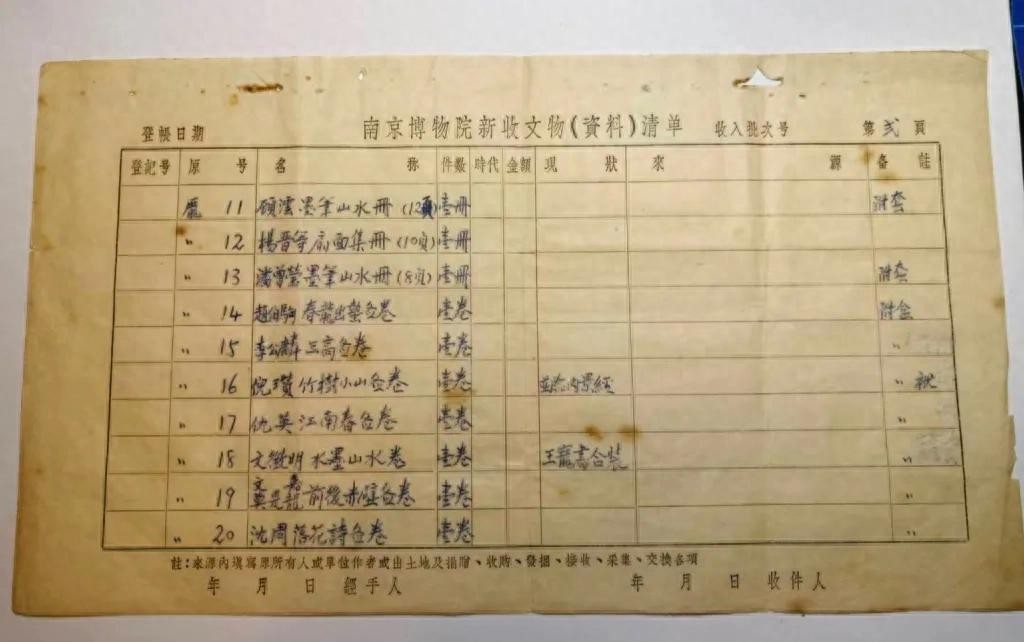 登帳日期 南京博物院新收文物(資料)清单 收入批次号 第弍頁
登記号 原号 名称 件数 時代 金額 現狀 來源 备註
龐 11 顾澐墨笔山水冊(12頁) 壹冊 附套
〃 12 楊晋等扇面集冊(10页) 壹冊
〃 13 潘曾瑩墨笔山水冊(8页) 壹冊 附套
〃 14 趙伯駒 春龍出蟄㕣卷 壹卷 附盒
〃 15 李公麟 三高㕣卷 壹卷 〃
〃 16 倪瓚 竹樹小山㕣卷 壹卷 内景經 〃
〃 17 仇英 江南春㕣卷 壹卷 〃
〃 18 文徵明 水墨山水卷 壹卷 王寵書合裝 〃
〃 19 文嘉 莫是龍 前後赤壁㕣卷 壹卷 〃
〃 20 沈周 落花詩㕣卷 壹卷 〃
註:來源內填寫原所有人或單位作者或出土地及捐贈、收購、發掘、接收、采集、交換各項
年 月 日 經手人 年 月 日 收件人